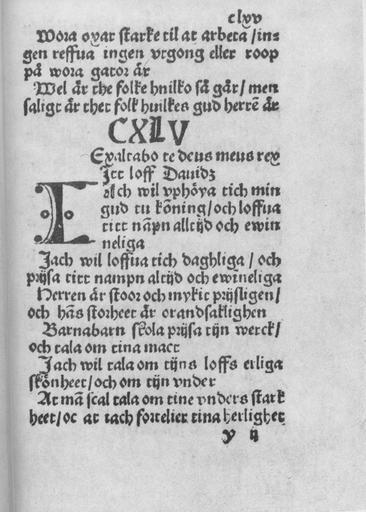 clyv
Wora oyar starke til at arbeta/in=
gen reffua ingen vtgong eller roop
på wora gator är
Wel är the folke huilko så går/men
saligt är thet folk huilkes gud herrē är
CXLV
Exaltabo te deus meus rex
Itt loff Dauidz
Jach wil vphöya tich min
gud tu kōning/och loffua
titt nāpn alltijd och ewin
neliga
Jach wil loffua tich daghliga/och
prijsa titt nampn altijd och ewineliga
Herren är stoor och mykit prijsligen/
och hās storheet är orandsaklighen
Barnabarn skola prijsa tijn werck/
och tala om tina mact
Jach wil tala om tijns loffs erliga
skönheet/och om tijn vnder
At mā scal tala om tine vnders stark
heet/oc at iach fortelier tina herlighet
y ij